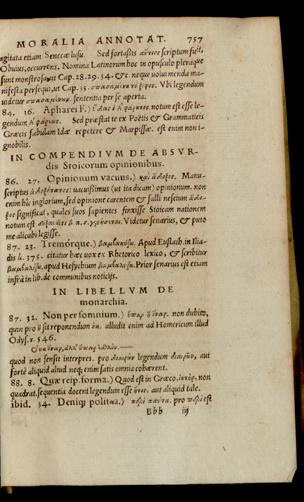 MORALIA ANNOTAT. 757
agitata etiam Senecæ lusu. Sed fortassis scriptum fuit,
Obuius, occurrens. Nomina Latinorum hoc in opusculo pleraque
sunt monstrosa, ut Cap. 28. 29. 34. &c. neque uolui menda ma-
nifesta persequi, ut Cap. 35. Vbi legendum
uidetur sententia per se aperta.
84. 16. Apharei F.) notum est esse le-
gendum Sed præstat te ex Poëtis & Grammaticis
Græcis fabulam Idæ repetere & Marpissæ. est enim non i-
gnobilis.
IN COMPENDIVM DE ABSVR-
dis Stoicorum opinionibus.
86. 27. Opinionum vacuus.) Manu-
scriptus uacuissimus (ut ita dicam) opinionum. non
enim hîc inglorium, sed opinione carentem & falli nescium
significat, quales suos sapientes finxisse Stoicam nationem
notum est Videtur senarius, & puto
me alicubi legisse.
87. 23. Tremórque.) Apud Eustath. in Ilia-
dis 375. citatur hæc uox ex Rhetorico lexico, & scribitur
apud Hesychium Prior senarius est etiam
infrà in lib. de communibus notitijs.
IN LIBELLVM DE
monarchia.
87. 32. Non per somnium.) ὕπαρ non dubito,
quin pro sit reponendum alludit enim ad Homericum illud
Odyss. 546.
Οὐκ ὄναρ, ἀλλ' ὕπαρ ἐσθλόν.
quod non sensit interpres. pro legendum aut
fortè aliquid aliud neq; enim satis omnia cohærent.
88. 8. Quæ reip. forma.) Quod est in Græco, non
quadrat. sequentia docent legendum esse aut aliquid tale.
ibid. 34. Deniq; politna.) pro est
Bbb iij